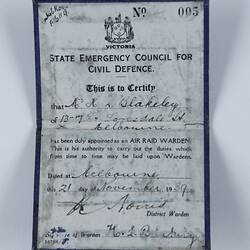 No 005
VICTORIA
STATE EMERGENCY COUNCIL FOR
CIVIL DEFENCE.
This is to Certify
that Blakeley
of Lonsdale St
Melbourne
has been duly appointed as an AIR RAID WARDEN.
This is his authority to carry out the duties which
from time to time may be laid upon Wardens.
Dated at Melbourne
this 21 day of November 19
Norris
District Warden
of Warden